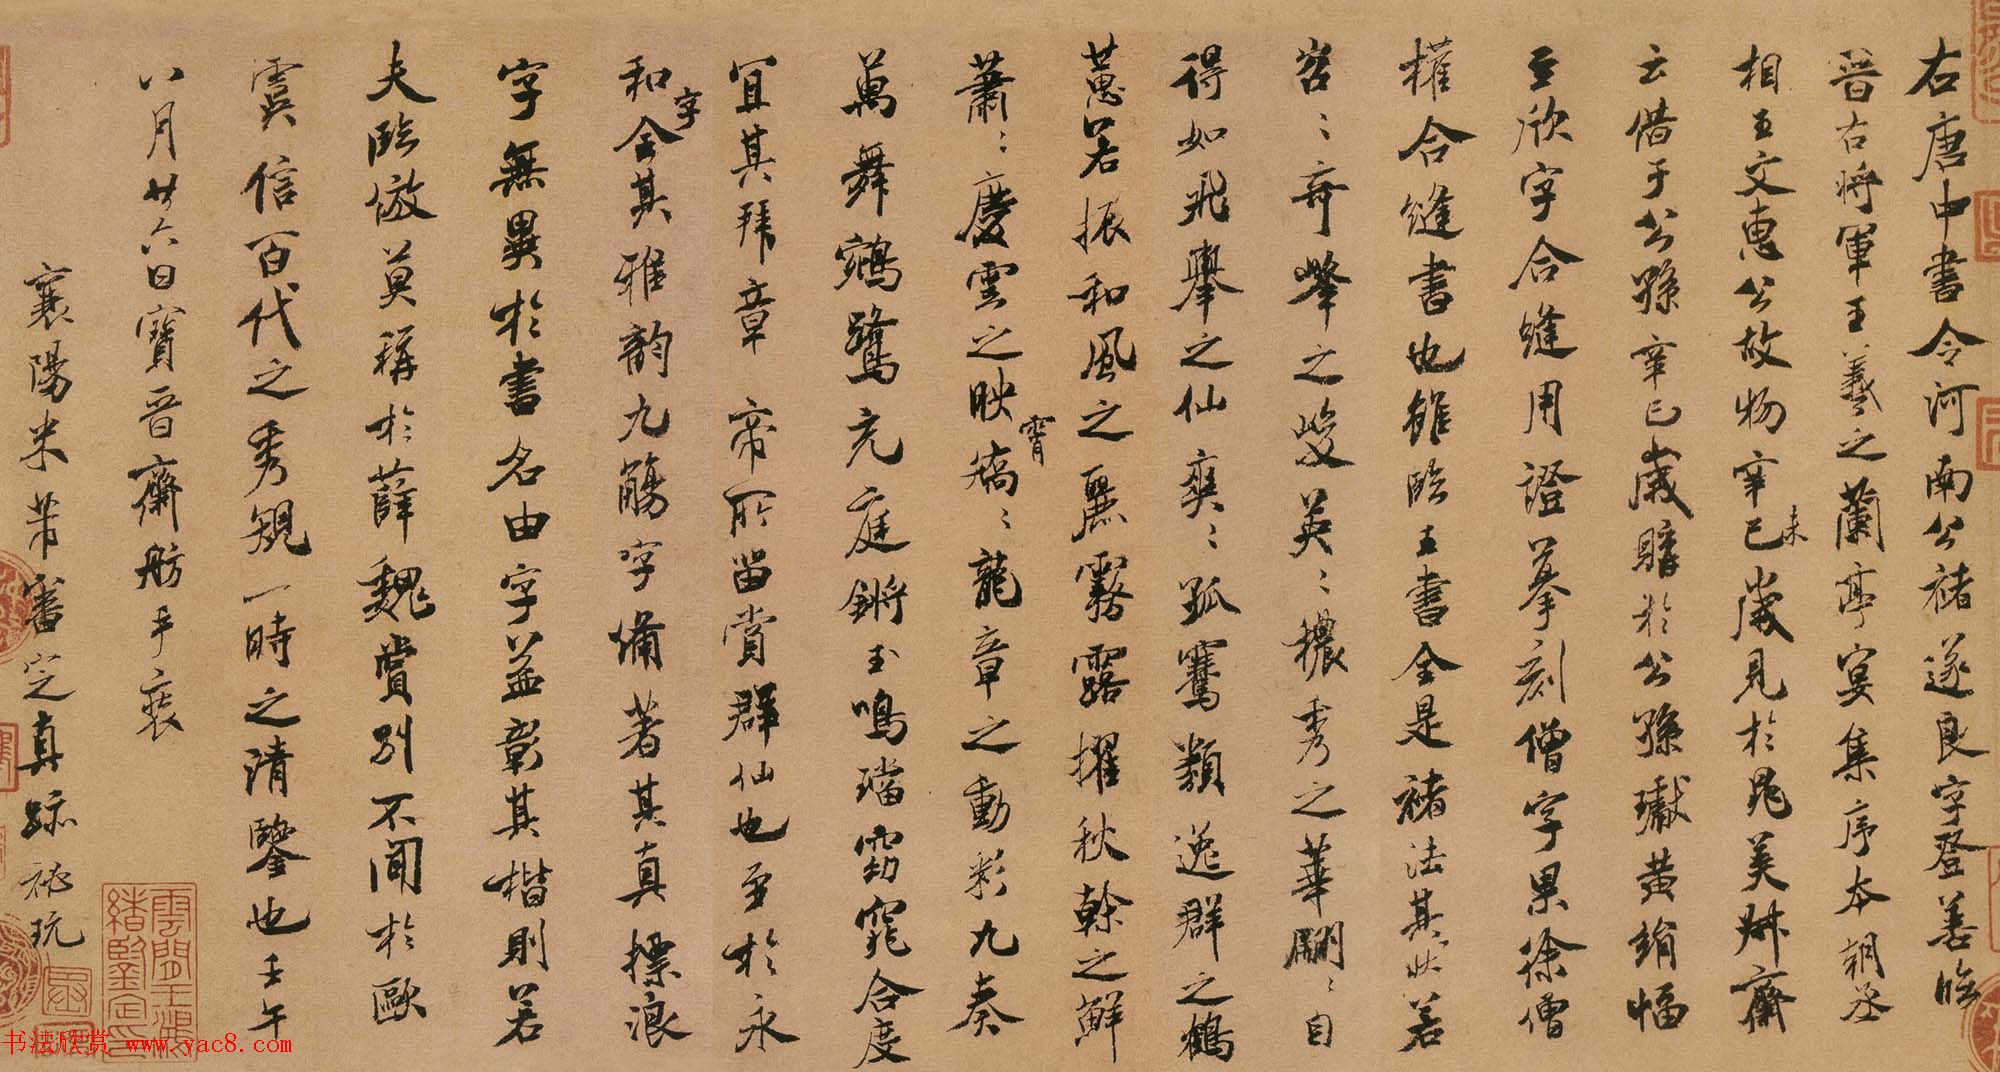 右唐中書令河南公褚遂良字登善臨
晉右將軍王羲之蘭亭宴集序本朝丞
相王文惠公故物辛巳歲未見於晁美叔齋
云借于公孫辛巳歲購於公孫瓛黃絹幅
至欣字合縫用證摹刻僧字果徐僧
權合縫書也雖臨王書全是褚法其狀若
岩〻奇峰之峻英〻穠秀之華翩〻自
得如飛舉之仙爽〻孤騫類逸群之鶴
蕙若振和風之麗霧露擢秋幹之鮮
蕭〻慶雲之映霄矯〻龍章之動彩九奏
萬舞鵷鷺充庭鏘玉鳴璫窈窕合度
宜其拜章帝所留賞群仙也至於永
和字全其雅韵九觴字備著其真標浪
字無異於書名由字益彰其楷則若
夫臨倣莫稱於薛魏賞別不聞於歐
虞信百代之秀規一時之清鑒也壬午
八月廿六日寶晉齋舫手裝
襄陽米芾審定真跡祕玩
雲間王鴻緒鑒定印
书法欣赏 www.yac8.com